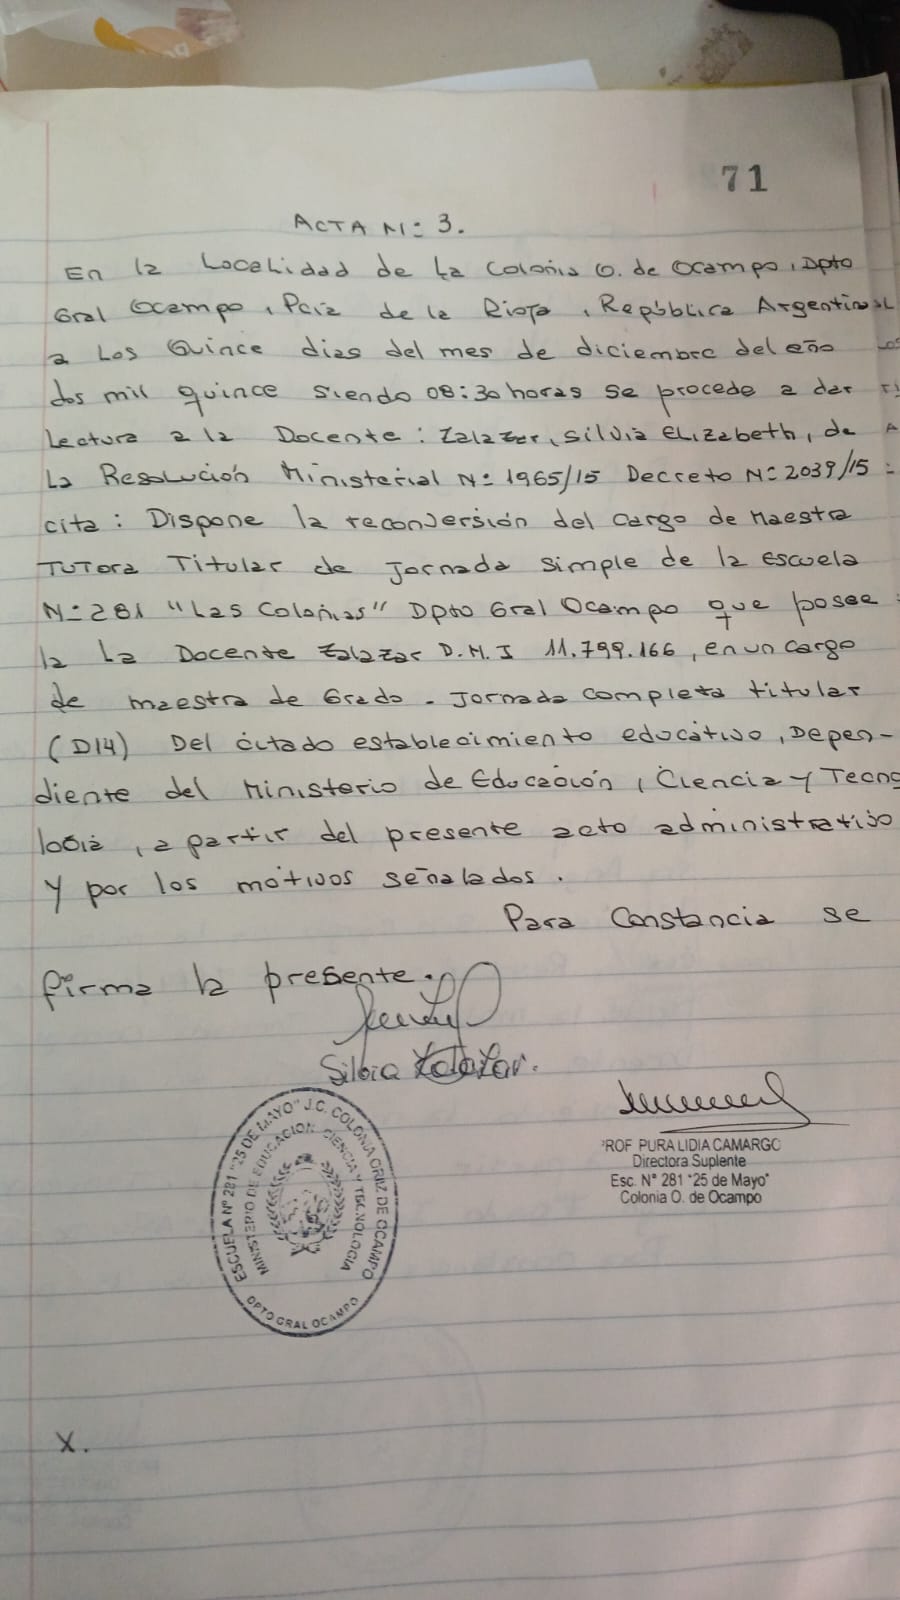 71
ACTA Nº 3.
En la Localidad de La Colonia O. de Ocampo, Dpto
Gral Ocampo, Pcia de la Rioja, República Argentina
a Los Quince dias del mes de diciembre del año
dos mil quince siendo 08:30 horas se procede a dar
Lectura a la Docente: Zalazar, Silvia Elizabeth, de
La Resolución Ministerial Nº 1965/15 Decreto Nº 2039/15
cita: Dispone la reconversión del cargo de Maestra
TUTora Titular de Jornada simple de la escuela
Nº 281 "Las Colonias" Dpto Gral Ocampo que posee
la La Docente Zalazar D.M.I 11.799.166, en un cargo
de maestra de Grado - Jornada completa titular
(D14) Del citado establecimiento educativo, Depen-
diente del Ministerio de Educación, Ciencia y Tecno
logia, a partir del presente acto administrativo
y por los motivos señalados.
Para Constancia se
firma la presente.
Silvia Zalazar.
ESCUELA Nº 281 "25 DE MAYO" J.C. COLONIA ORTIZ DE OCAMPO
MINISTERIO DE EDUCACION CIENCIA Y TECNOLOGIA
DPTO GRAL OCAMPO
PROF PURA LIDIA CAMARGO
Directora Suplente
Esc. N° 281 "25 de Mayo"
Colonia O. de Ocampo
X.